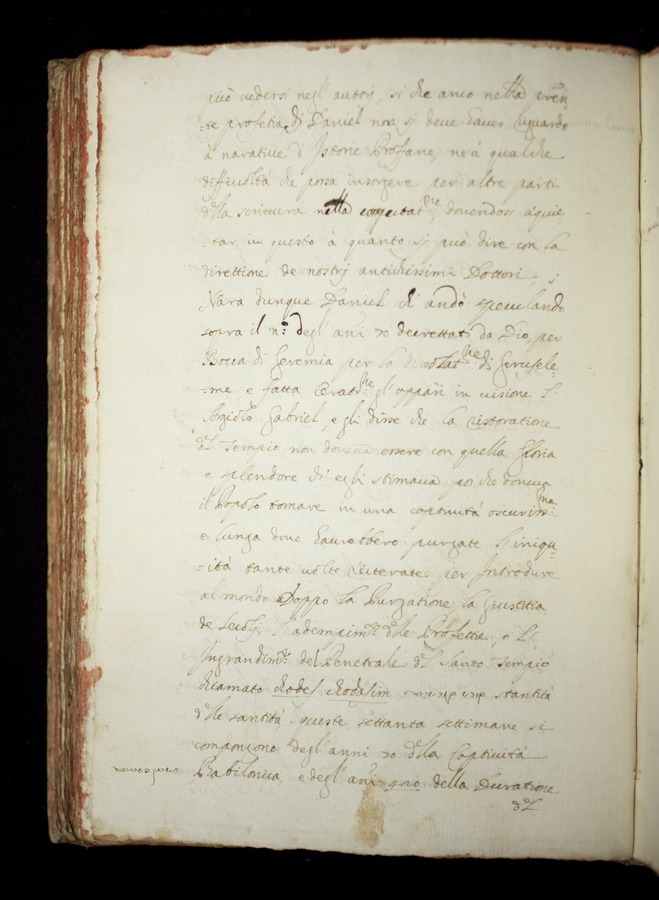 può vedersi negl' autori, si che anco nella pren
-te profetia di Daniel non si deve haver riguardo
à narative d' Istorie Profane, ne à qualche
difficoltà che possa insorgere per altre parti
della scrittura nella computat.ne, dovendosi aquie
-tar in questo à quanto si può dire con la
direttione de nostri antichissimi Dottori.
Nara dunque Daniel ch' andò speculando
sovra il n.o degl' anni 70 decrettati da Dio per
Bocca di Geremia per la disolat.ne di Gerusale-
-me, e fatta l'orat.ne gl' apparì in visione l'
Angiolo Gabriel, e gli disse che la ristoratione
del Tempio non doveva essere con quella Gloria
e splendore ch' egli stimava poi che doveva
il Popolo tornare in una captività oscuriss.ma
e lunga dove haverebbero purgate l' iniqu-
-ità tante volte reiterate per Introdure
al mondo Doppo la Purgatione la Giustitia
de secoli, l' adempim.to delle Profettie, e l'
Ingrandim.to del Penetrale del Santo Tempio
chiamato chodes chodasim קדש קדשים santità
delle santità queste settanta settimane si
compongono degl' anni 70 della Captività
Babilonica, e degl' anni 420 della Duratione
del